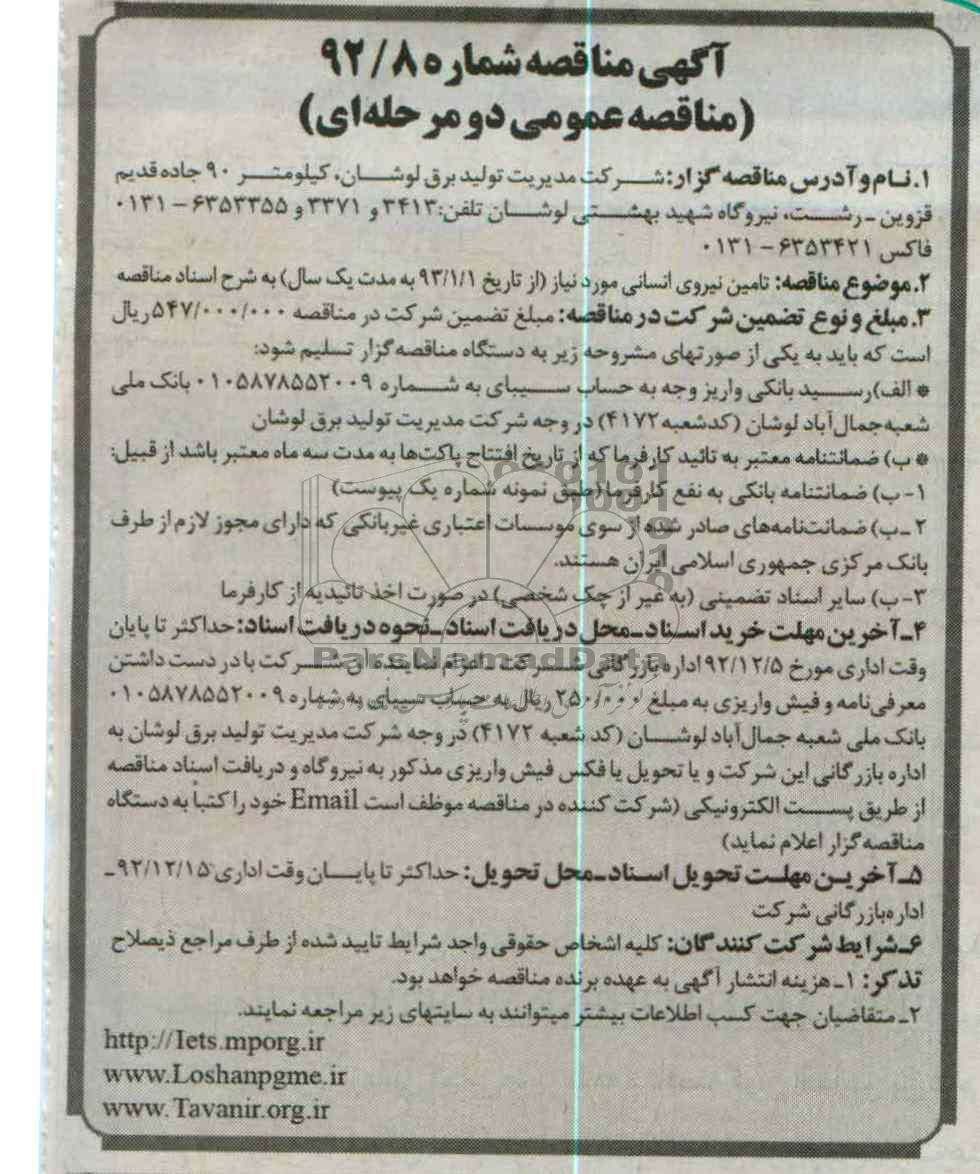 آگهی مناقصه شماره ۹۲/۸
(مناقصه عمومی دو مرحله‌ای)
۱.نام و آدرس مناقصه گزار: شرکت مدیریت تولید برق لوشان، کیلومتر ۹۰ جاده قدیم
قزوین - رشت، نیروگاه شهید بهشتی لوشان تلفن: ۳۴۱۳ و ۳۳۷۱ و ۶۳۵۳۳۵۵ - ۰۱۳۱
فاکس ۶۳۵۳۴۲۱ - ۰۱۳۱
۲.موضوع مناقصه: تامین نیروی انسانی مورد نیاز (از تاریخ ۹۳/۱/۱ به مدت یک سال) به شرح اسناد مناقصه
۳.مبلغ و نوع تضمین شرکت در مناقصه: مبلغ تضمین شرکت در مناقصه ۵۴۷/۰۰۰/۰۰۰ ریال
است که باید به یکی از صورتهای مشروحه زیر به دستگاه مناقصه گزار تسلیم شود:
* الف) رسید بانکی واریز وجه به حساب سیبای به شماره ۰۱۰۵۸۷۸۵۵۲۰۰۹ بانک ملی
شعبه جمال‌آباد لوشان (کدشعبه ۴۱۷۲) در وجه شرکت مدیریت تولید برق لوشان
* ب) ضمانتنامه معتبر به تائید کارفرما که از تاریخ افتتاح پاکت‌ها به مدت سه ماه معتبر باشد از قبیل:
۱- ب) ضمانتنامه بانکی به نفع کارفرما (طبق نمونه شماره یک پیوست)
۲ -ب) ضمانت‌نامه‌های صادر شده از سوی موسسات اعتباری غیربانکی که دارای مجوز لازم از طرف
بانک مرکزی جمهوری اسلامی ایران هستند.
۳- ب) سایر اسناد تضمینی (به غیر از چک شخصی) در صورت اخذ تائیدیه از کارفرما
۴ـ آخرین مهلت خرید اسناد ـ محل دریافت اسناد ـ نحوه دریافت اسناد: حداکثر تا پایان
وقت اداری مورخ ۹۲/۱۲/۵ اداره بازرگانی شرکت - اعزام نماینده آن شرکت با در دست داشتن
ParsNamadData
معرفی‌نامه و فیش واریزی به مبلغ ۲۵۰/۰۰۰ ریال به حساب سیبای به شماره ۰۱۰۵۸۷۸۵۵۲۰۰۹
بانک ملی شعبه جمال‌آباد لوشان (کد شعبه ۴۱۷۲) در وجه شرکت مدیریت تولید برق لوشان به
اداره بازرگانی این شرکت و یا تحویل یا فکس فیش واریزی مذکور به نیروگاه و دریافت اسناد مناقصه
از طریق پست الکترونیکی (شرکت کننده در مناقصه موظف است Email خود را کتباً به دستگاه
مناقصه گزار اعلام نماید)
۵ـ آخرین مهلت تحویل اسناد ـ محل تحویل: حداکثر تا پایان وقت اداری ۹۲/۱۲/۱۵ـ
اداره بازرگانی شرکت
۶ـ شرایط شرکت کنندگان: کلیه اشخاص حقوقی واجد شرایط تایید شده از طرف مراجع ذیصلاح
تذکر: ۱ـ هزینه انتشار آگهی به عهده برنده مناقصه خواهد بود.
۲ـ متقاضیان جهت کسب اطلاعات بیشتر میتوانند به سایتهای زیر مراجعه نمایند.
http://Iets.mporg.ir
www.Loshanpgme.ir
www.Tavanir.org.ir